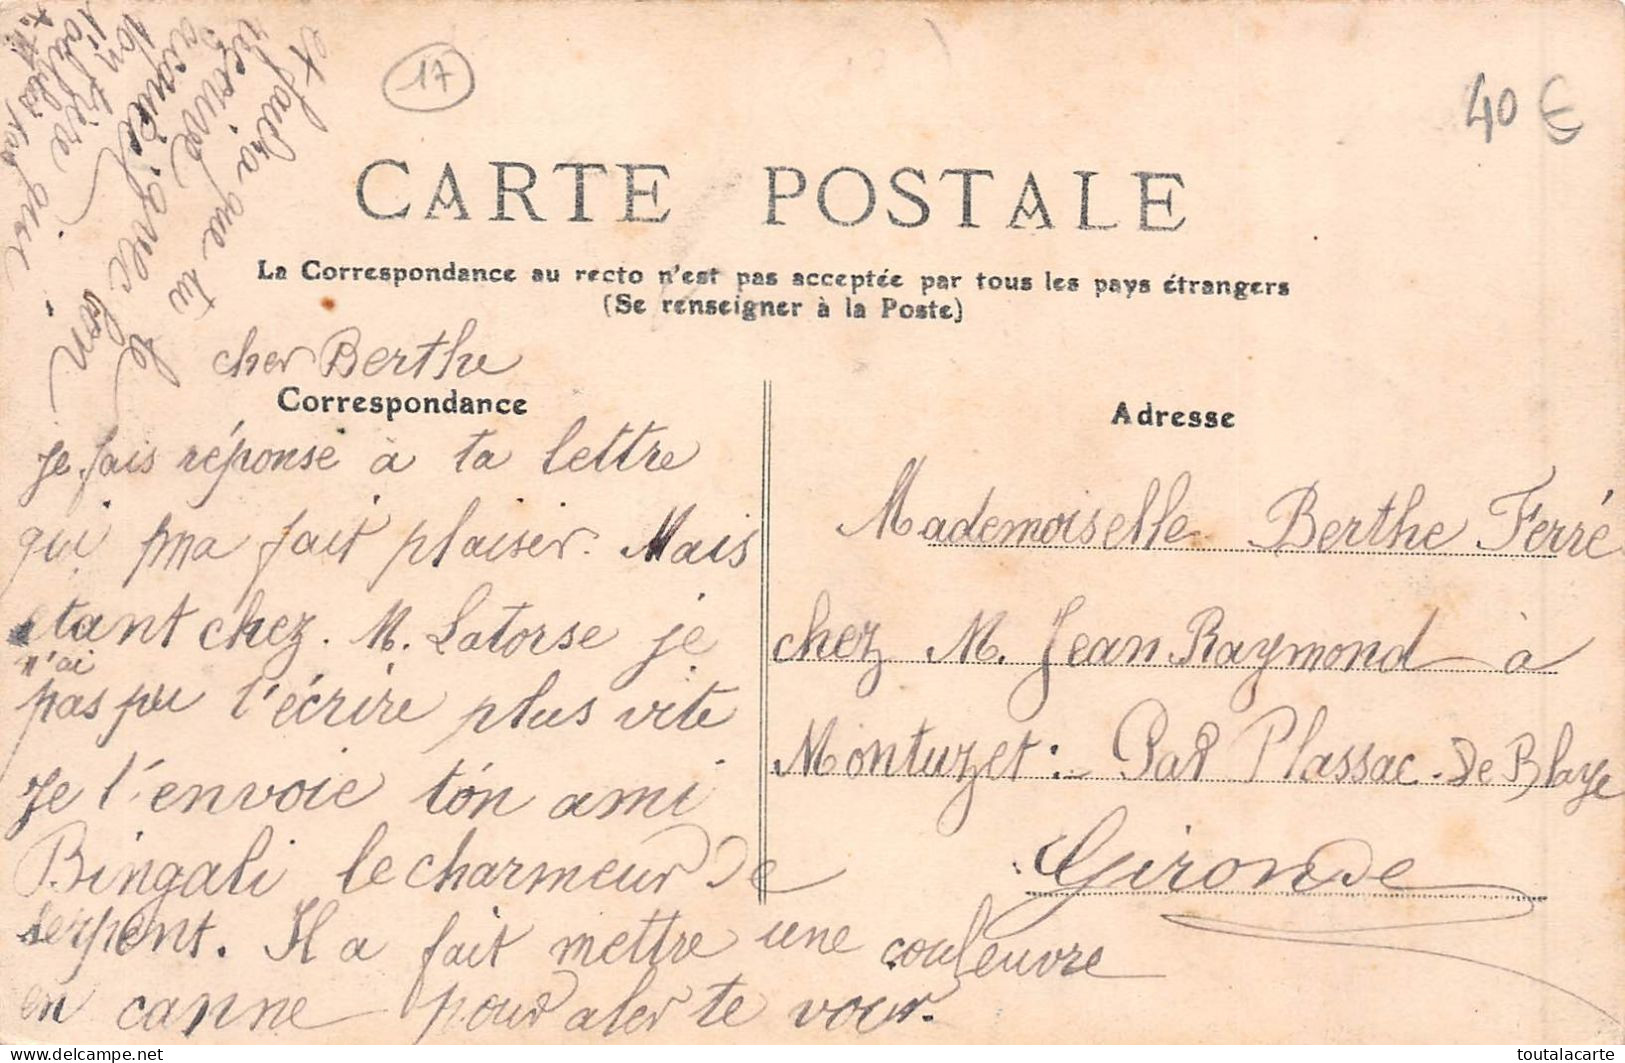 17
40 €
CARTE POSTALE
La Correspondance au recto n'est pas acceptée par tous les pays étrangers
(Se renseigner à la Poste)
cher Berthe
Correspondance
je fais réponse à ta lettre
qui ma fait plaisir. Mais
etant chez. M. Latorse je
n'ai
pas pu l'écrire plus vite
Je l'envoie ton ami
Bingali le charmeur de
serpent. Il a fait mettre une couleuvre
en canne pour aler te voir.
et faudra que tu
le
bon
ton frère
qui
Adresse
Mademoiselle Berthe Ferré
chez M. Jean Raymond à
Montuzet : Par Plassac-de Blaye
Gironde
toutalacarte